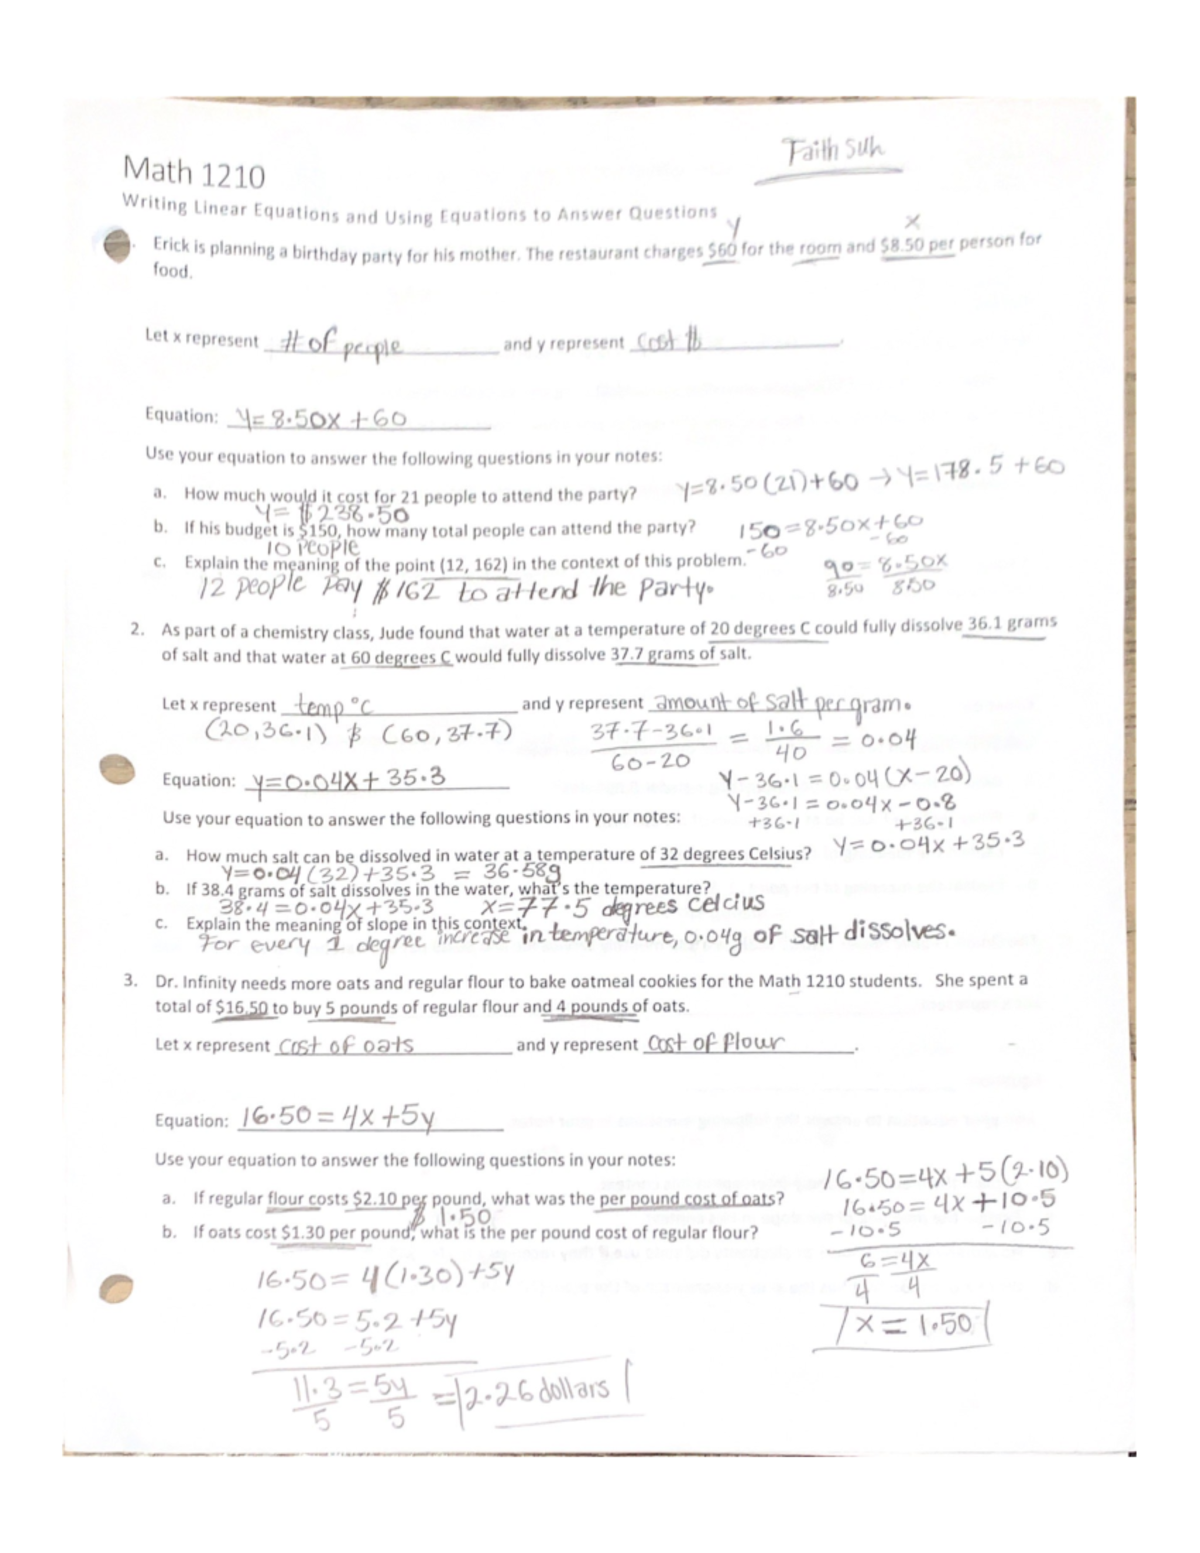 Faith Suh
Math 1210
Writing Linear Equations and Using Equations to Answer Questions
y x
Erick is planning a birthday party for his mother. The restaurant charges $60 for the room and $8.50 per person for
food.
Let x represent # of people and y represent Cost $.
Equation: y=8.50x+60
Use your equation to answer the following questions in your notes:
a. How much would it cost for 21 people to attend the party? y=8.50(21)+60 → y=178.5+60
y=$238.50
b. If his budget is $150, how many total people can attend the party? 150=8.50x+60
10 people -60 -60
c. Explain the meaning of the point (12, 162) in the context of this problem. 90=8.50x
12 people pay $162 to attend the party. 8.50 8.50
2. As part of a chemistry class, Jude found that water at a temperature of 20 degrees C could fully dissolve 36.1 grams
of salt and that water at 60 degrees C would fully dissolve 37.7 grams of salt.
Let x represent temp °C and y represent amount of salt per gram.
(20,36.1) & (60,37.7) 37.7-36.1 = 1.6 = 0.04
60-20 40
Equation: y=0.04x+35.3 y-36.1=0.04(x-20)
y-36.1=0.04x-0.8
Use your equation to answer the following questions in your notes: +36.1 +36.1
a. How much salt can be dissolved in water at a temperature of 32 degrees Celsius? y=0.04x+35.3
y=0.04(32)+35.3 = 36.58g
b. If 38.4 grams of salt dissolves in the water, what's the temperature?
38.4=0.04x+35.3 x=77.5 degrees celcius
c. Explain the meaning of slope in this context.
For every 1 degree increase in temperature, 0.04g of salt dissolves.
3. Dr. Infinity needs more oats and regular flour to bake oatmeal cookies for the Math 1210 students. She spent a
total of $16.50 to buy 5 pounds of regular flour and 4 pounds of oats.
Let x represent cost of oats and y represent Cost of flour.
Equation: 16.50=4x+5y
Use your equation to answer the following questions in your notes:
16.50=4x+5(2.10)
a. If regular flour costs $2.10 per pound, what was the per pound cost of oats? 16.50=4x+10.5
$1.50 -10.5 -10.5
b. If oats cost $1.30 per pound, what is the per pound cost of regular flour?
6=4x
4 4
x=1.50
16.50=4(1.30)+5y
16.50=5.2+5y
-5.2 -5.2
11.3=5y =2.26 dollars
5 5